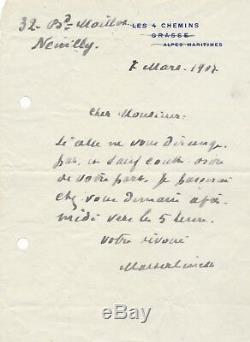 32 Bd. Maillot
Neuilly.
LES 4 CHEMINS
GRASSE
ALPES MARITIMES
7 Mars. 1907
Cher Monsieur:
Si cela ne vous dérange
pas, et sauf contre ordre
de votre part, je passerai
chez vous demain après-
midi vers les 5 heures.
votre dévoué
Maeterlinck